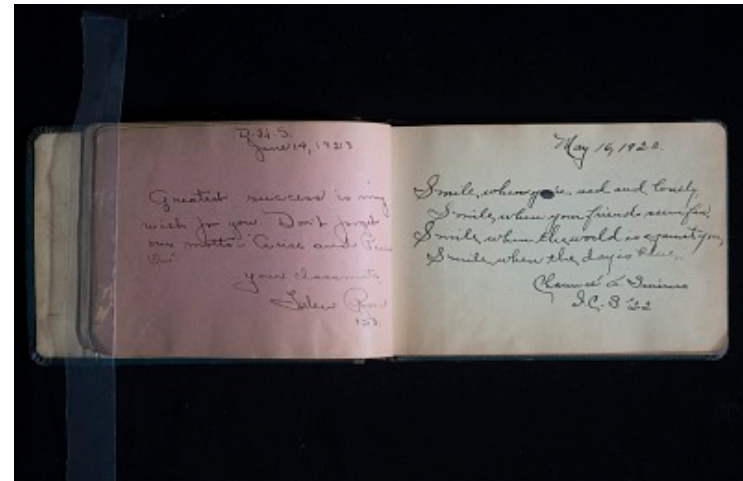 D. H. S.
June 14, 1923
Greatest success is my
wish for you. Don't forget
our motto - "Arise and
your classmate,
Helen
'23.
May 16, 1923.
Smile, when you're sad and lonely
Smile, when your friends seem few,
Smile, when the world is against you,
Smile when the day is blue.
L.
'22